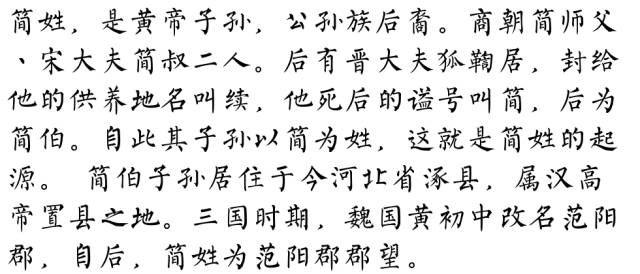 简姓，是黄帝子孙，公孙族后裔。商朝简师父
、宋大夫简叔二人。后有晋大夫狐鞫居，封给
他的供养地名叫续，他死后的谥号叫简，后为
简伯。自此其子孙以简为姓，这就是简姓的起
源。 简伯子孙居住于今河北省涿县，属汉高
帝置县之地。三国时期，魏国黄初中改名范阳
郡，自后，简姓为范阳郡郡望。